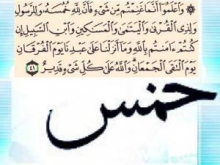 ۞ وَاعْلَمُوا أَنَّمَا غَنِمْتُم مِّن شَيْءٍ فَأَنَّ لِلَّهِ خُمُسَهُ وَلِلرَّسُولِ
وَلِذِي الْقُرْبَىٰ وَالْيَتَامَىٰ وَالْمَسَاكِينِ وَابْنِ السَّبِيلِ إِن
كُنتُمْ آمَنتُم بِاللَّهِ وَمَا أَنزَلْنَا عَلَىٰ عَبْدِنَا يَوْمَ الْفُرْقَانِ
يَوْمَ الْتَقَى الْجَمْعَانِ وَاللَّهُ عَلَىٰ كُلِّ شَيْءٍ قَدِيرٌ ٤١
خمس